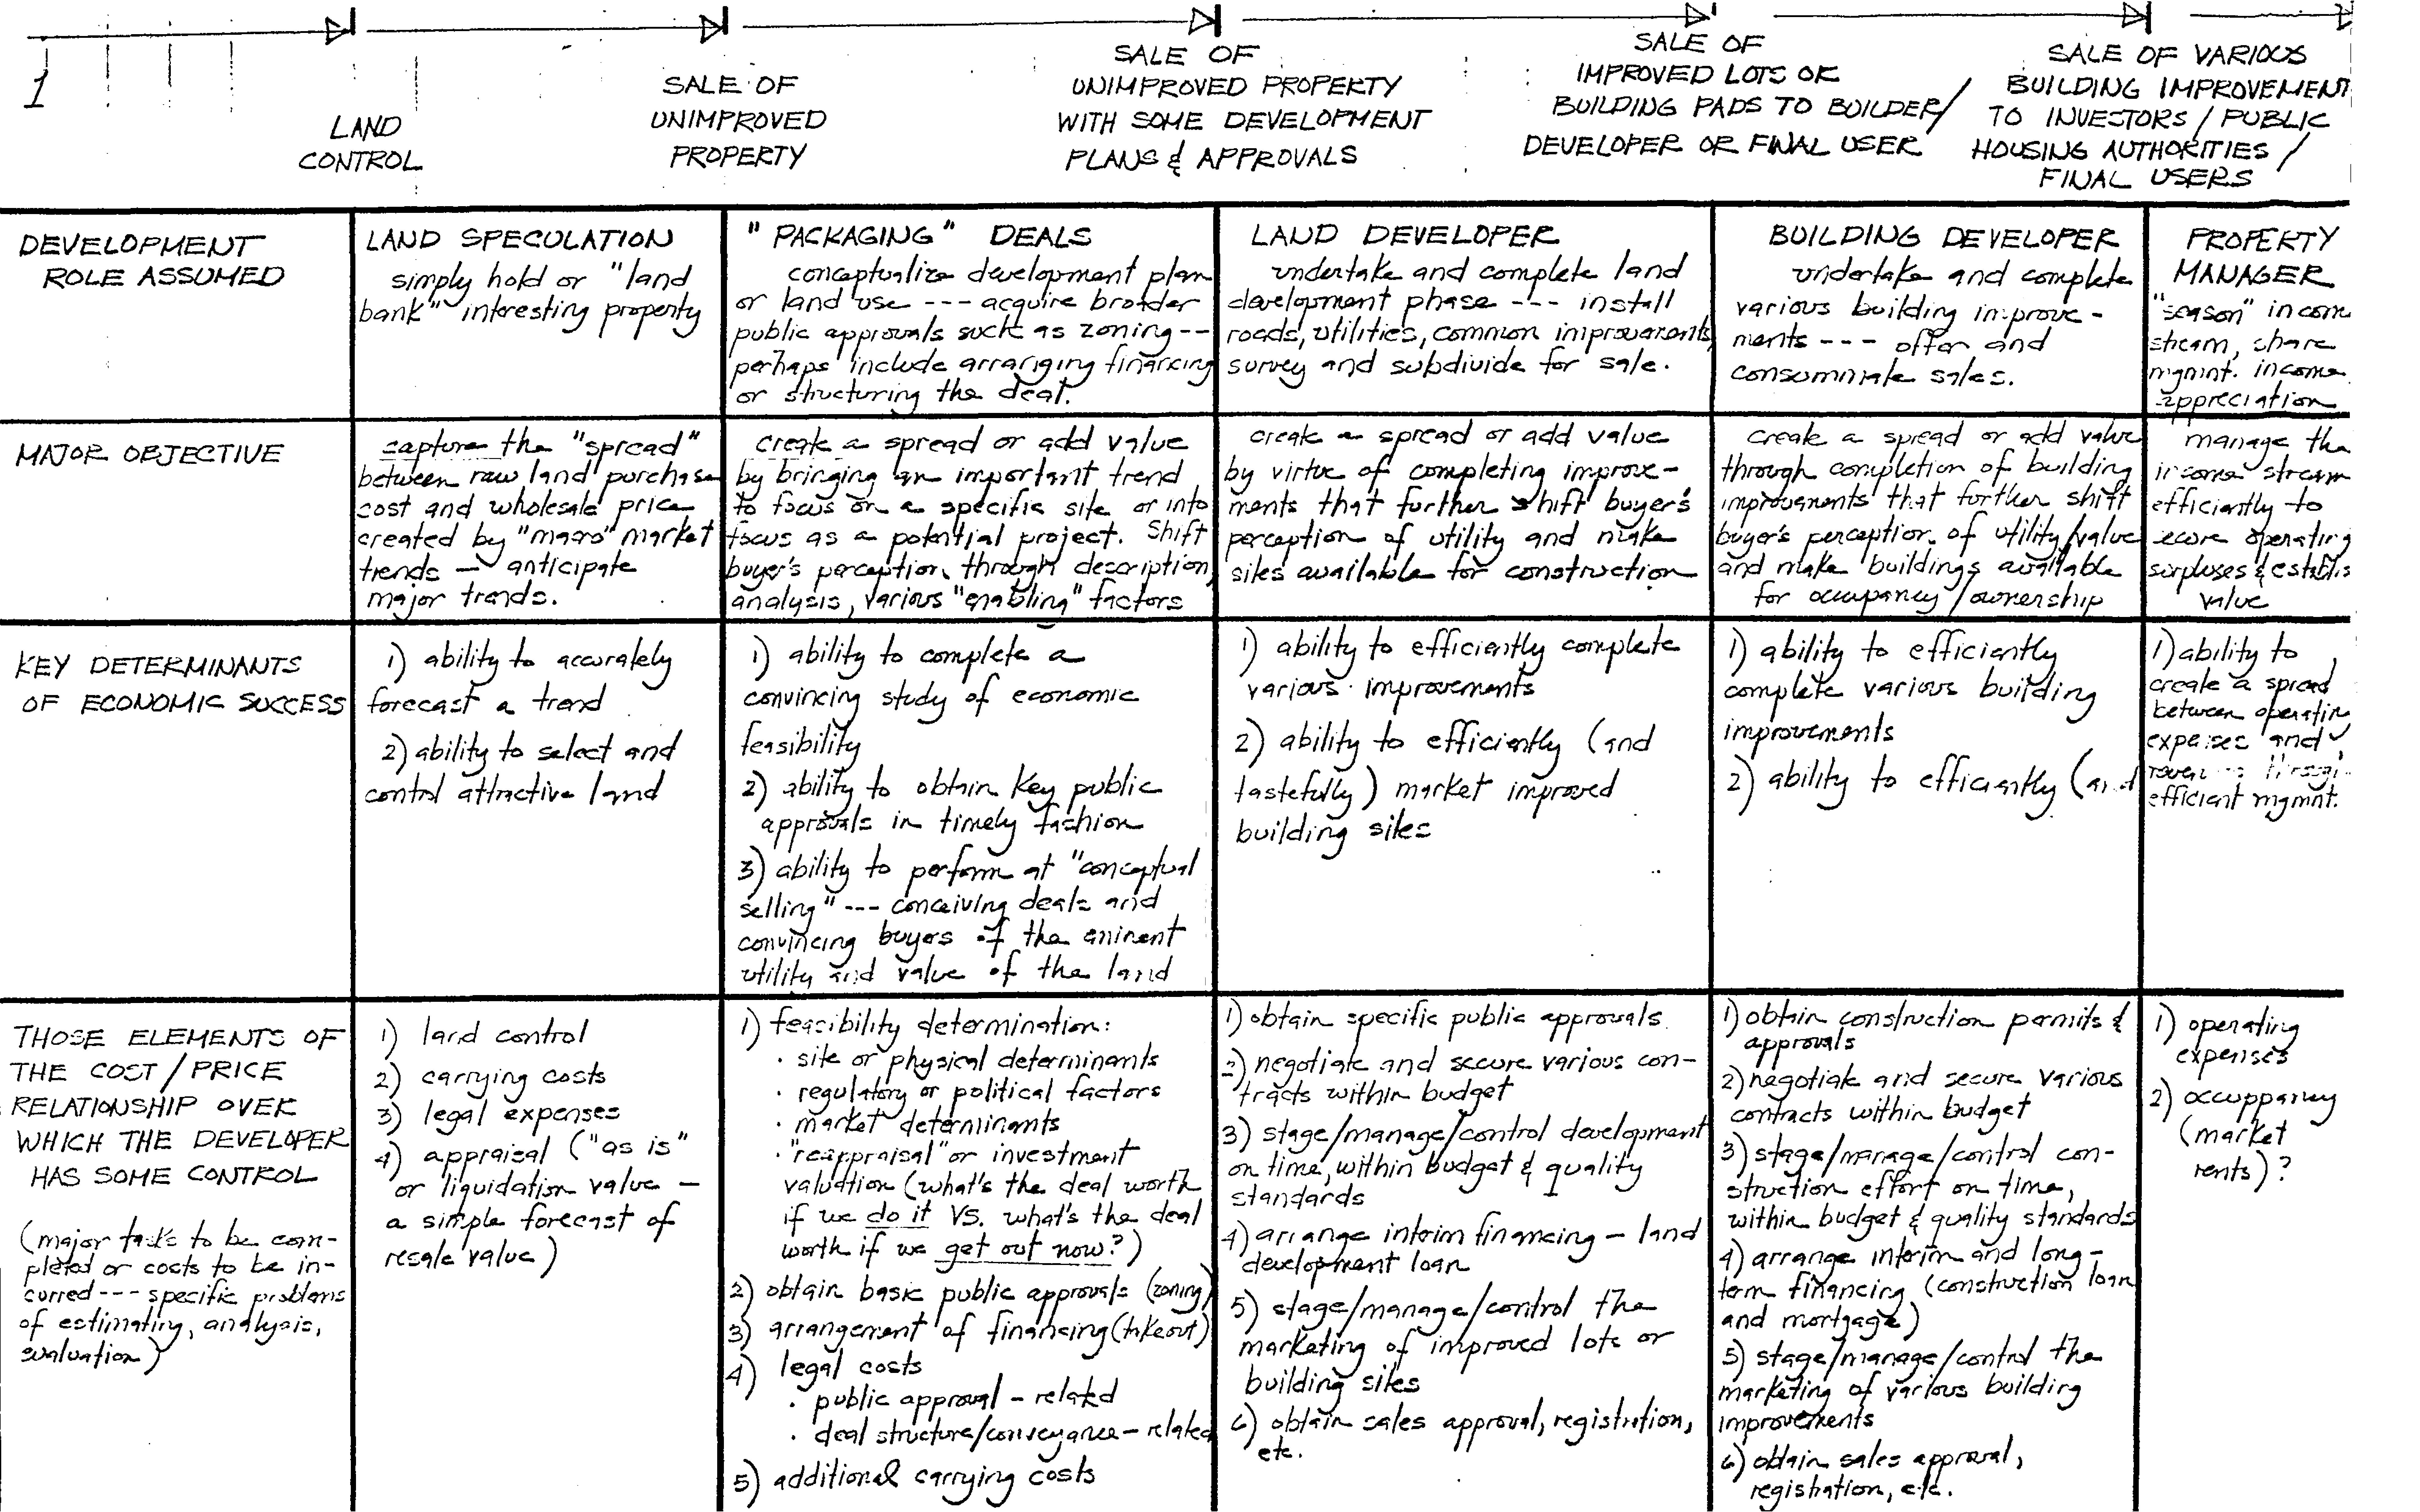 1
LAND
CONTROL
SALE OF
UNIMPROVED
PROPERTY
SALE OF
UNIMPROVED PROPERTY
WITH SOME DEVELOPMENT
PLANS & APPROVALS
SALE OF
IMPROVED LOTS OR
BUILDING PADS TO BUILDER/
DEVELOPER OR FINAL USER
SALE OF VARIOUS
BUILDING IMPROVEMENT
TO INVESTORS / PUBLIC
HOUSING AUTHORITIES /
FINAL USERS
DEVELOPMENT
ROLE ASSUMED
LAND SPECULATION
simply hold or "land
bank" interesting property
"PACKAGING" DEALS
conceptualize development plan
or land use --- acquire broader
public approvals such as zoning --
perhaps include arranging financing
or structuring the deal.
LAND DEVELOPER
undertake and complete land
development phase --- install
roads, utilities, common improvements,
survey and subdivide for sale.
BUILDING DEVELOPER
undertake and complete
various building improve-
ments --- offer and
consummate sales.
PROPERTY
MANAGER
"season" incom
stream, share
mgmnt. income
appreciation
MAJOR OBJECTIVE
capture the "spread"
between raw land purchase
cost and wholesale price
created by "macro" market
trends — anticipate
major trends.
create a spread or add value
by bringing an important trend
to focus on a specific site or into
focus as a potential project. Shift
buyer's perception through description,
analysis, various "enabling" factors
create a spread or add value
by virtue of completing improve-
ments that further shift buyer's
perception of utility and make
sites available for construction
create a spread or add value
through completion of building
improvements that further shift
buyer's perception of utility/value
and make buildings available
for occupancy / ownership
manage the
income stream
efficiently to
secure operating
surpluses & establis
value
KEY DETERMINANTS
OF ECONOMIC SUCCESS
1) ability to accurately
forecast a trend
2) ability to select and
control attractive land
1) ability to complete a
convincing study of economic
feasibility
2) ability to obtain key public
approvals in timely fashion
3) ability to perform at "conceptual
selling" --- conceiving deals and
convincing buyers of the eminent
utility and value of the land
1) ability to efficiently complete
various improvements
2) ability to efficiently (and
tastefully) market improved
building sites
1) ability to efficiently
complete various building
improvements
2) ability to efficiently (and
1) ability to
create a spread
between operating
expenses and
efficient mgmnt.
THOSE ELEMENTS OF
THE COST / PRICE
RELATIONSHIP OVER
WHICH THE DEVELOPER
HAS SOME CONTROL
(major tasks to be com-
pleted or costs to be in-
curred --- specific problems
of estimating, analysis,
evaluation)
1) land control
2) carrying costs
3) legal expenses
4) appraisal ("as is"
or liquidation value —
a simple forecast of
resale value)
1) feasibility determination:
· site or physical determinants
· regulatory or political factors
· market determinants
· "reappraisal" or investment
valuation (what's the deal worth
if we do it VS. what's the deal
worth if we get out now?)
2) obtain basic public approvals (zoning)
3) arrangement of financing (takeout)
4) legal costs
· public approval - related
· deal structure/conveyance - related
5) additional carrying costs
1) obtain specific public approvals
2) negotiate and secure various con-
tracts within budget
3) stage/manage/control development
on time, within budget & quality
standards
4) arrange interim financing — land
development loan
5) stage/manage/control the
marketing of improved lots or
building sites
6) obtain sales approval, registration,
etc.
1) obtain construction permits &
approvals
2) negotiate and secure various
contracts within budget
3) stage/manage/control con-
struction effort on time,
within budget & quality standards
4) arrange interim and long-
term financing (construction loan
and mortgage)
5) stage/manage/control the
marketing of various building
improvements
6) obtain sales approval,
registration, etc.
1) operating
expenses
2) occupparncy
(market
rents)?